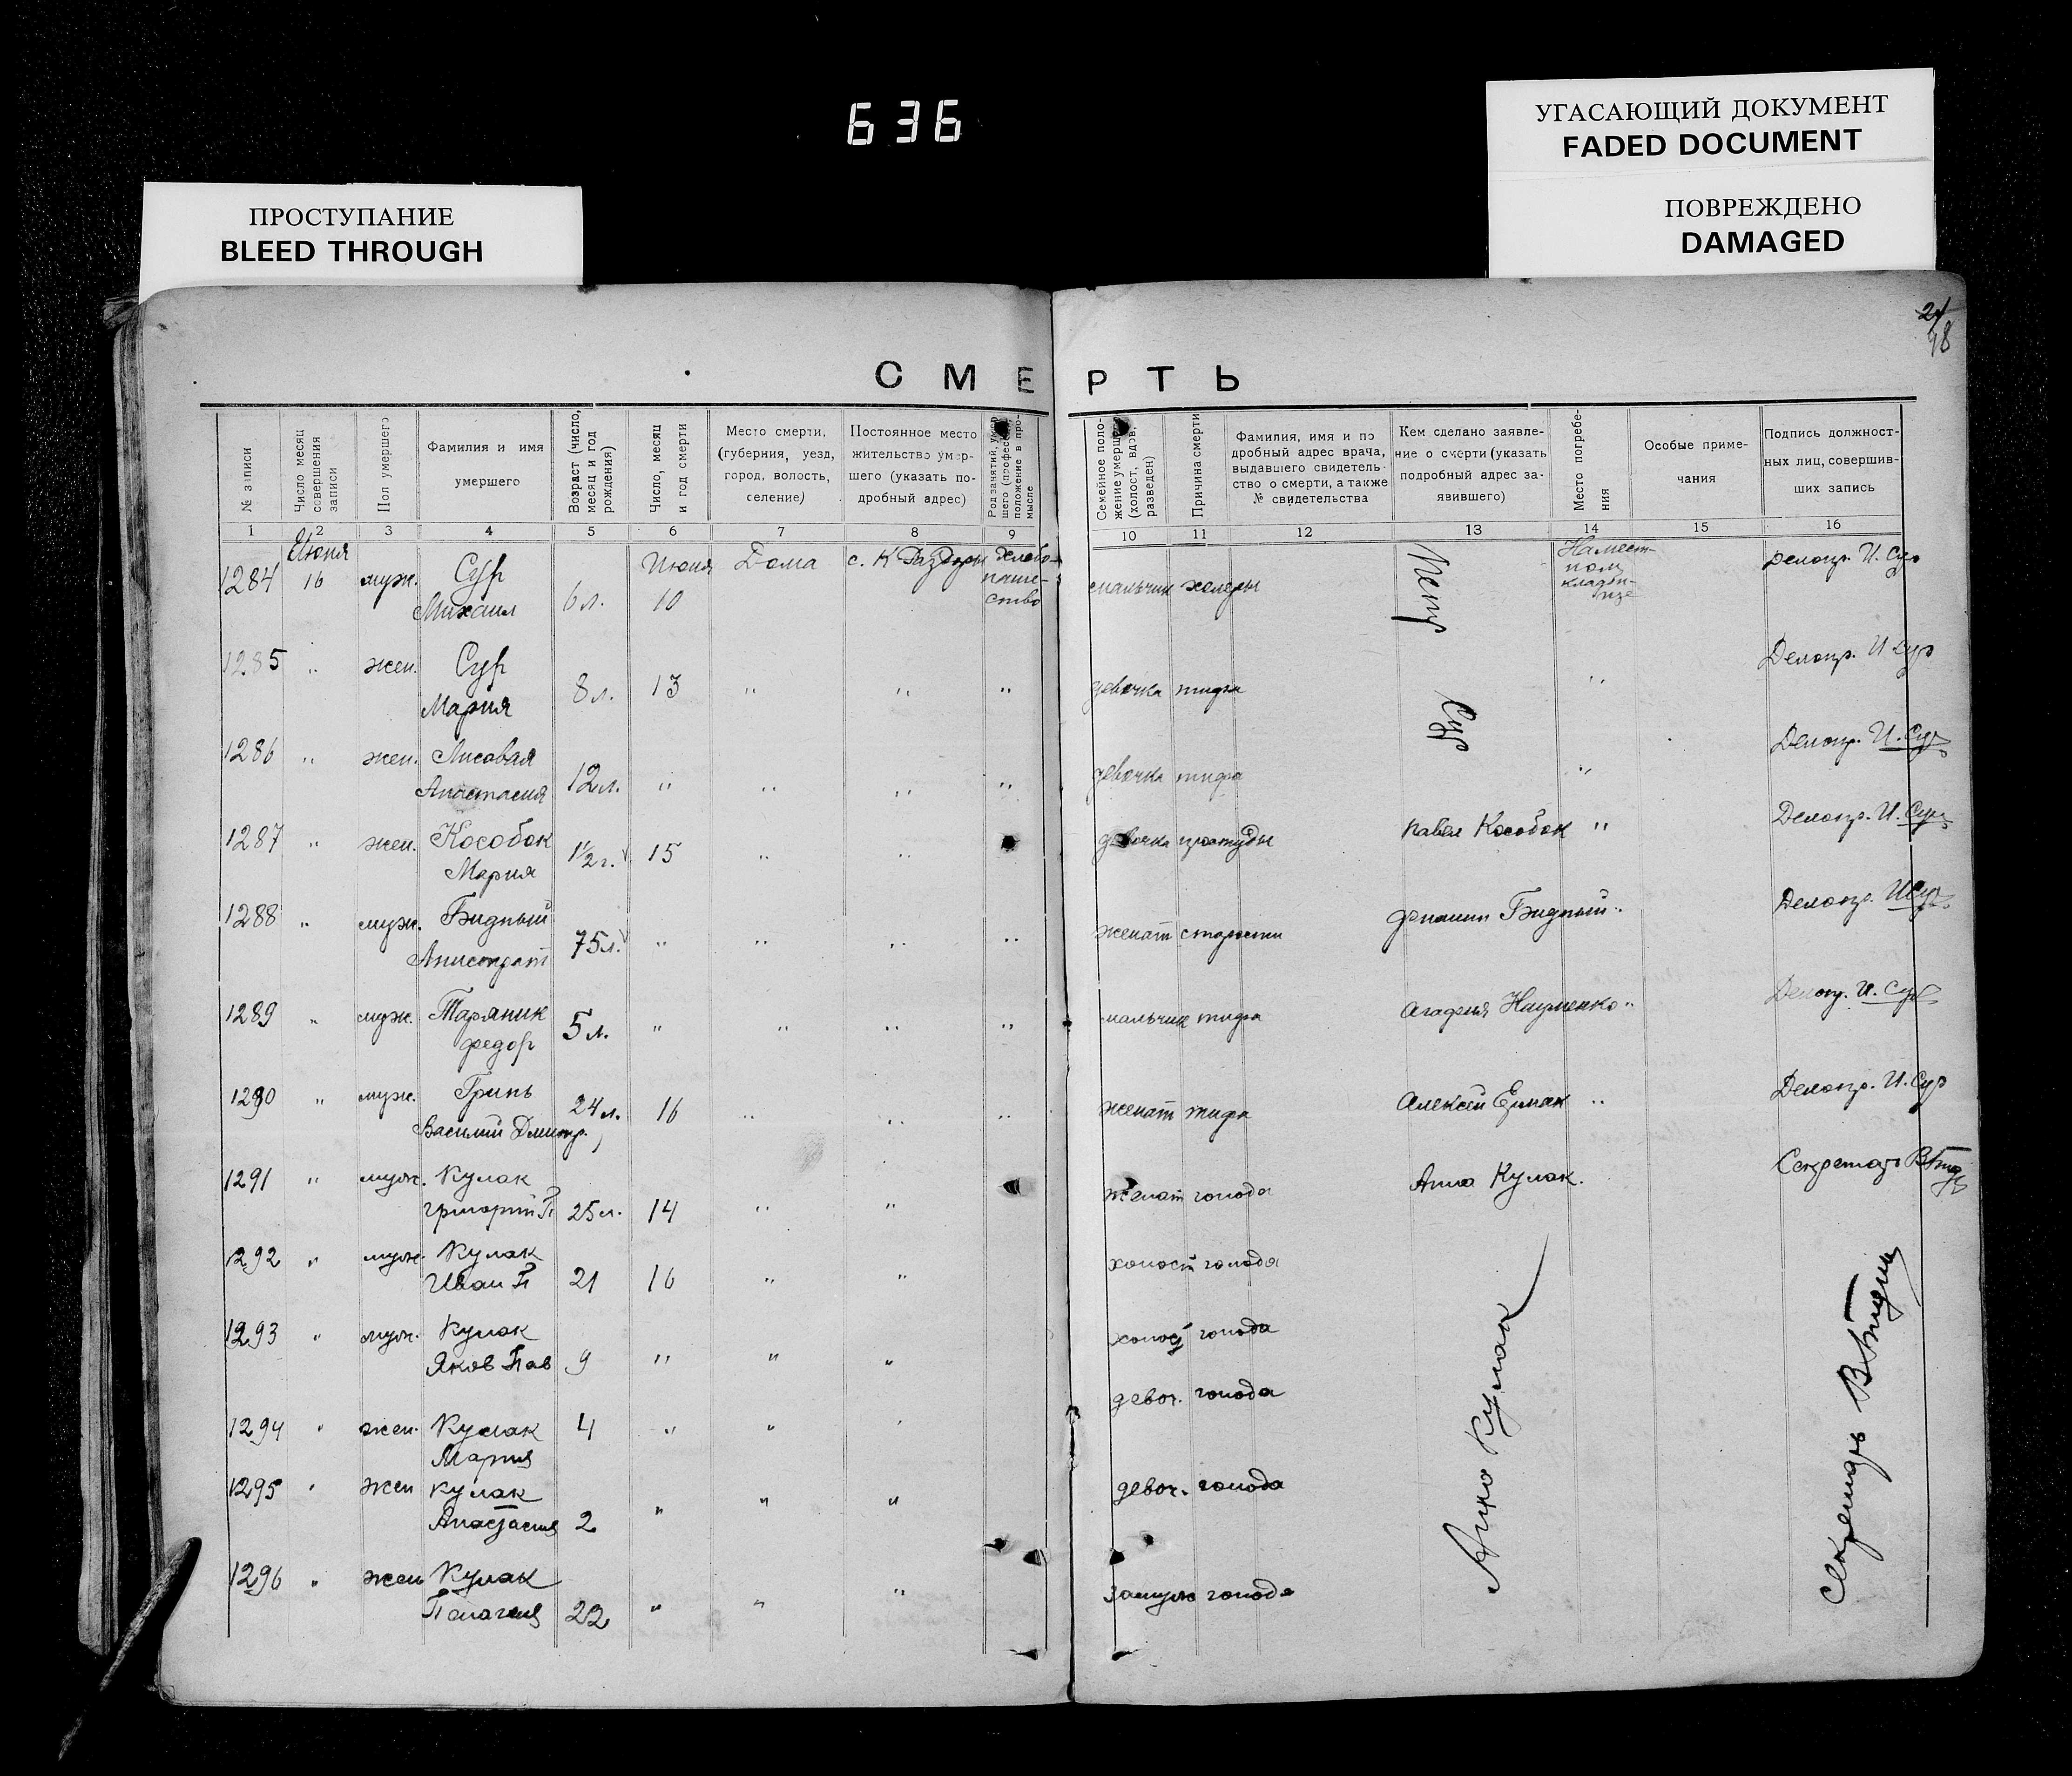 636
УГАСАЮЩИЙ ДОКУМЕНТ
FADED DOCUMENT
ПОВРЕЖДЕНО
DAMAGED
ПРОСТУПАНИЕ
BLEED THROUGH
21
48
СМЕРТЬ
№ записи
Число месяц совершения записи
Пол умершего
Фамилия и имя умершего
Возраст (число, месяц и год рождения)
Число, месяц и год смерти
Место смерти, (губерния, уезд, город, волость, селение)
Постоянное место жительство умершего (указать подробный адрес)
Род занятий, умершего (профессия, положение в промысле
Семейное положение умершего (холост, вдов, разведен)
Причина смерти
Фамилия, имя и подробный адрес врача, выдавшего свидетельство о смерти, а также № свидетельства
Кем сделано заявление о смерти (указать подробный адрес заявившего)
Место погребения
Особые примечания
Подпись должностных лиц, совершивших запись
1 2 3 4 5 6 7 8 9 10 11 12 13 14 15 16
1284 Июня 16 муж. Сур Михаил 6 л. Июня 10 Дома с. К Раздоры Хлебопашество мальчик холеры Петр Делопр. И. Сур
1285 " жен. Сур Мария 8 л. 13 " " " девочка тифа Сур " Делопр. И Сур
1286 " жен. Лисовая Анастасия 12 л. " " " " девочка тифа " Делопр. И. Сур
1287 " жен. Кособок Мария 1½ г. 15 " " девочка простуды Павел Кособок " Делопр. И. Сур
1288 " муж. Бидный Анистрат 75 л. " " " " женат старости Бидный " Делопр. И Сур
1289 " муж. Тараник Федор 5 л. " " " " мальчик тифа Агафия Науменко " Делопр. И. Сур
1290 " муж. Гринь Василий Дмитр. 24 л. 16 " " " женат тифа Алексей Ермак " Делопр. И. Сур
1291 " муж. Кулак П 25 л. 14 " " женат голода Анна Кулак. Секретарь
1292 " муж. Кулак Иван П 21 16 " " холост голода
1293 " муж. Кулак Яков Пав 9 " " " холост голода Анна Кулак Секретарь
1294 " жен. Кулак Мария 4 " " " девоч. голода
1295 " жен Кулак Анастасия 2 " " " девоч. голода
1296 " жен Кулак Палагея 22 " " " замужс голода